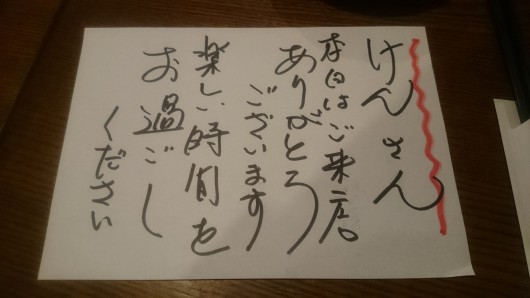 けんさん
本日はご来店
ありがとう
ございます
楽しい時間を
お過ごし
ください